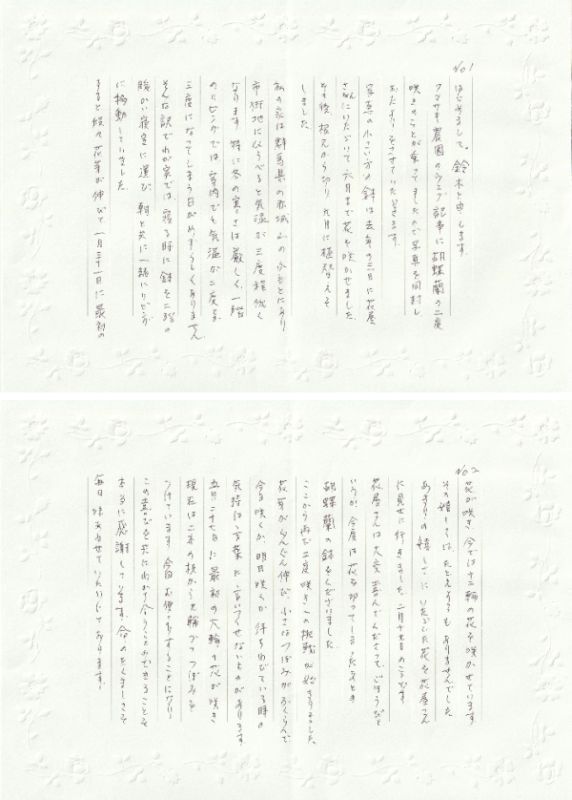 No.1
はじめまして。鈴木と申します。
アマサキ農園のウェブ記事に胡蝶蘭の二度
咲きのことが載ってましたので写真を同封し
おたよりさせていただきます。
写真の小さい方の鉢は去年の三月に花屋
さんにいただいて六月まで花を咲かせました。
その後、根元から切り九月に植替えを
しました。
私の家は群馬県の赤城山のふもとにあり
市街地にくらべると気温が三度程低く
なります。特に冬の寒さは厳しく、一階
のリビングでは室内でも気温が二度や
三度になってしまう日がめずらしくありません。
そんな訳でわが家では、寝る時に鉢を二階の
暖かい寝室に運び、朝と共に一緒にリビング
に移動していました。
すると段々花芽が伸びて一月三十一日に最初の
No.2
花が咲き、今では十二輪の花を咲かせています。
その嬉しさは、たとえようもありませんでした。
あまりの嬉しさに、いただいた花を花屋さん
に見せに行きました。二月十七日のことです。
花屋さんは大変喜んでくださって、ごほうびと
いうか、今度は花を切ってしまった大きな
胡蝶蘭の鉢をくださいました。
ここから再び二度咲きへの挑戦が始まりました。
花芽がぐんぐん伸び、小さなつぼみがふくらんで
今日咲くか、明日咲くか待ちわびている時の
気持は、言葉に言いつくせないものがあります。
五月二十七日に最初の大輪の花が咲き
現在は二本の枝から七輪づつつぼみを
つけています。今回お便りをすることになり
この喜びを共にわかち合うことができることを
本当に感謝しています。命のたくましさを
毎日味あわせていただいております。